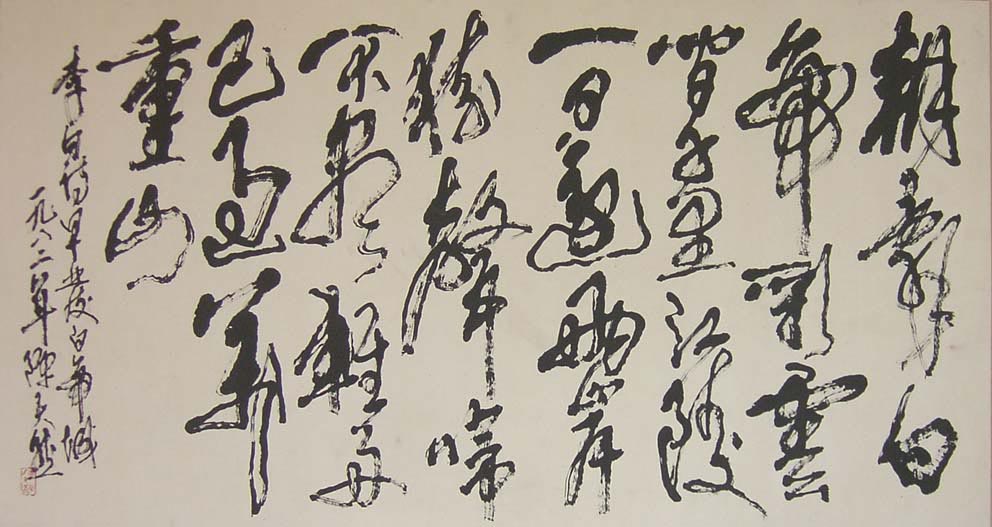 朝辭白
帝彩雲
間千里江陵
一日還兩岸
猿聲啼
不盡輕舟
已過萬
重山
李白詩早發白帝城
一九八二年陳天然